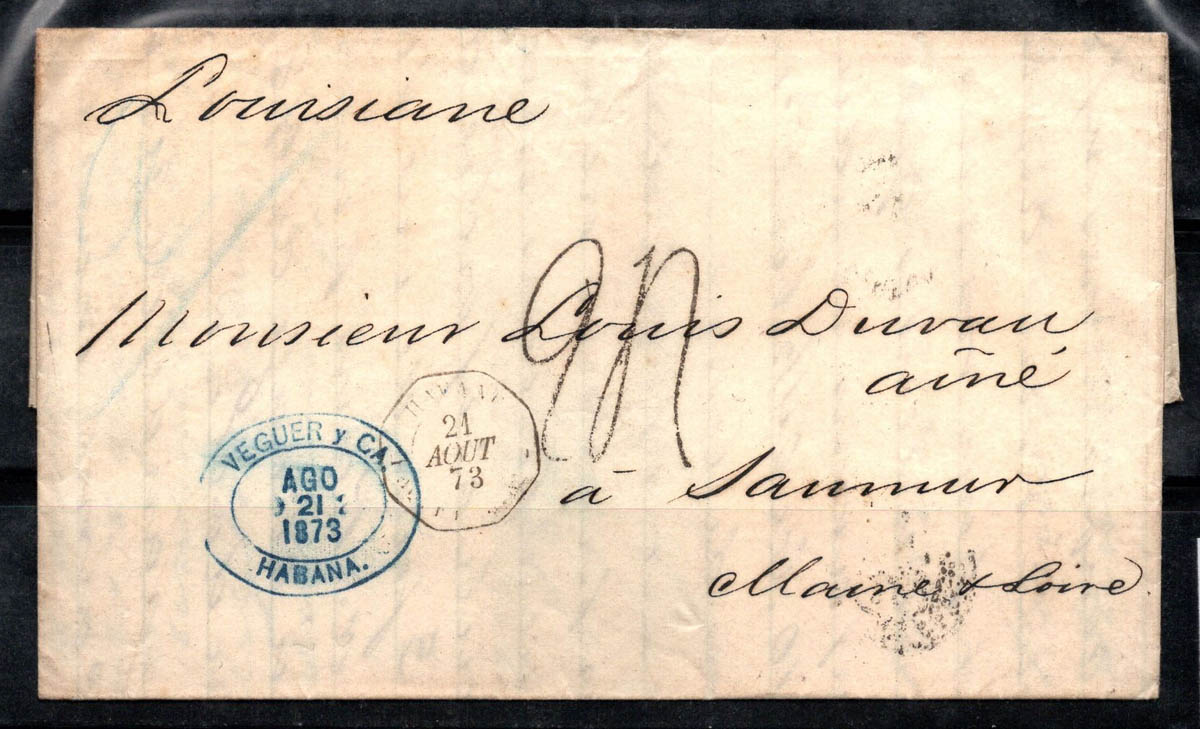 Louisiane
Monsieur Louis Duvau
aîné
à Saumur
Maine & Loire
VEGUER Y CA.
AGO
21
1873
HABANA.
21
AOUT
73